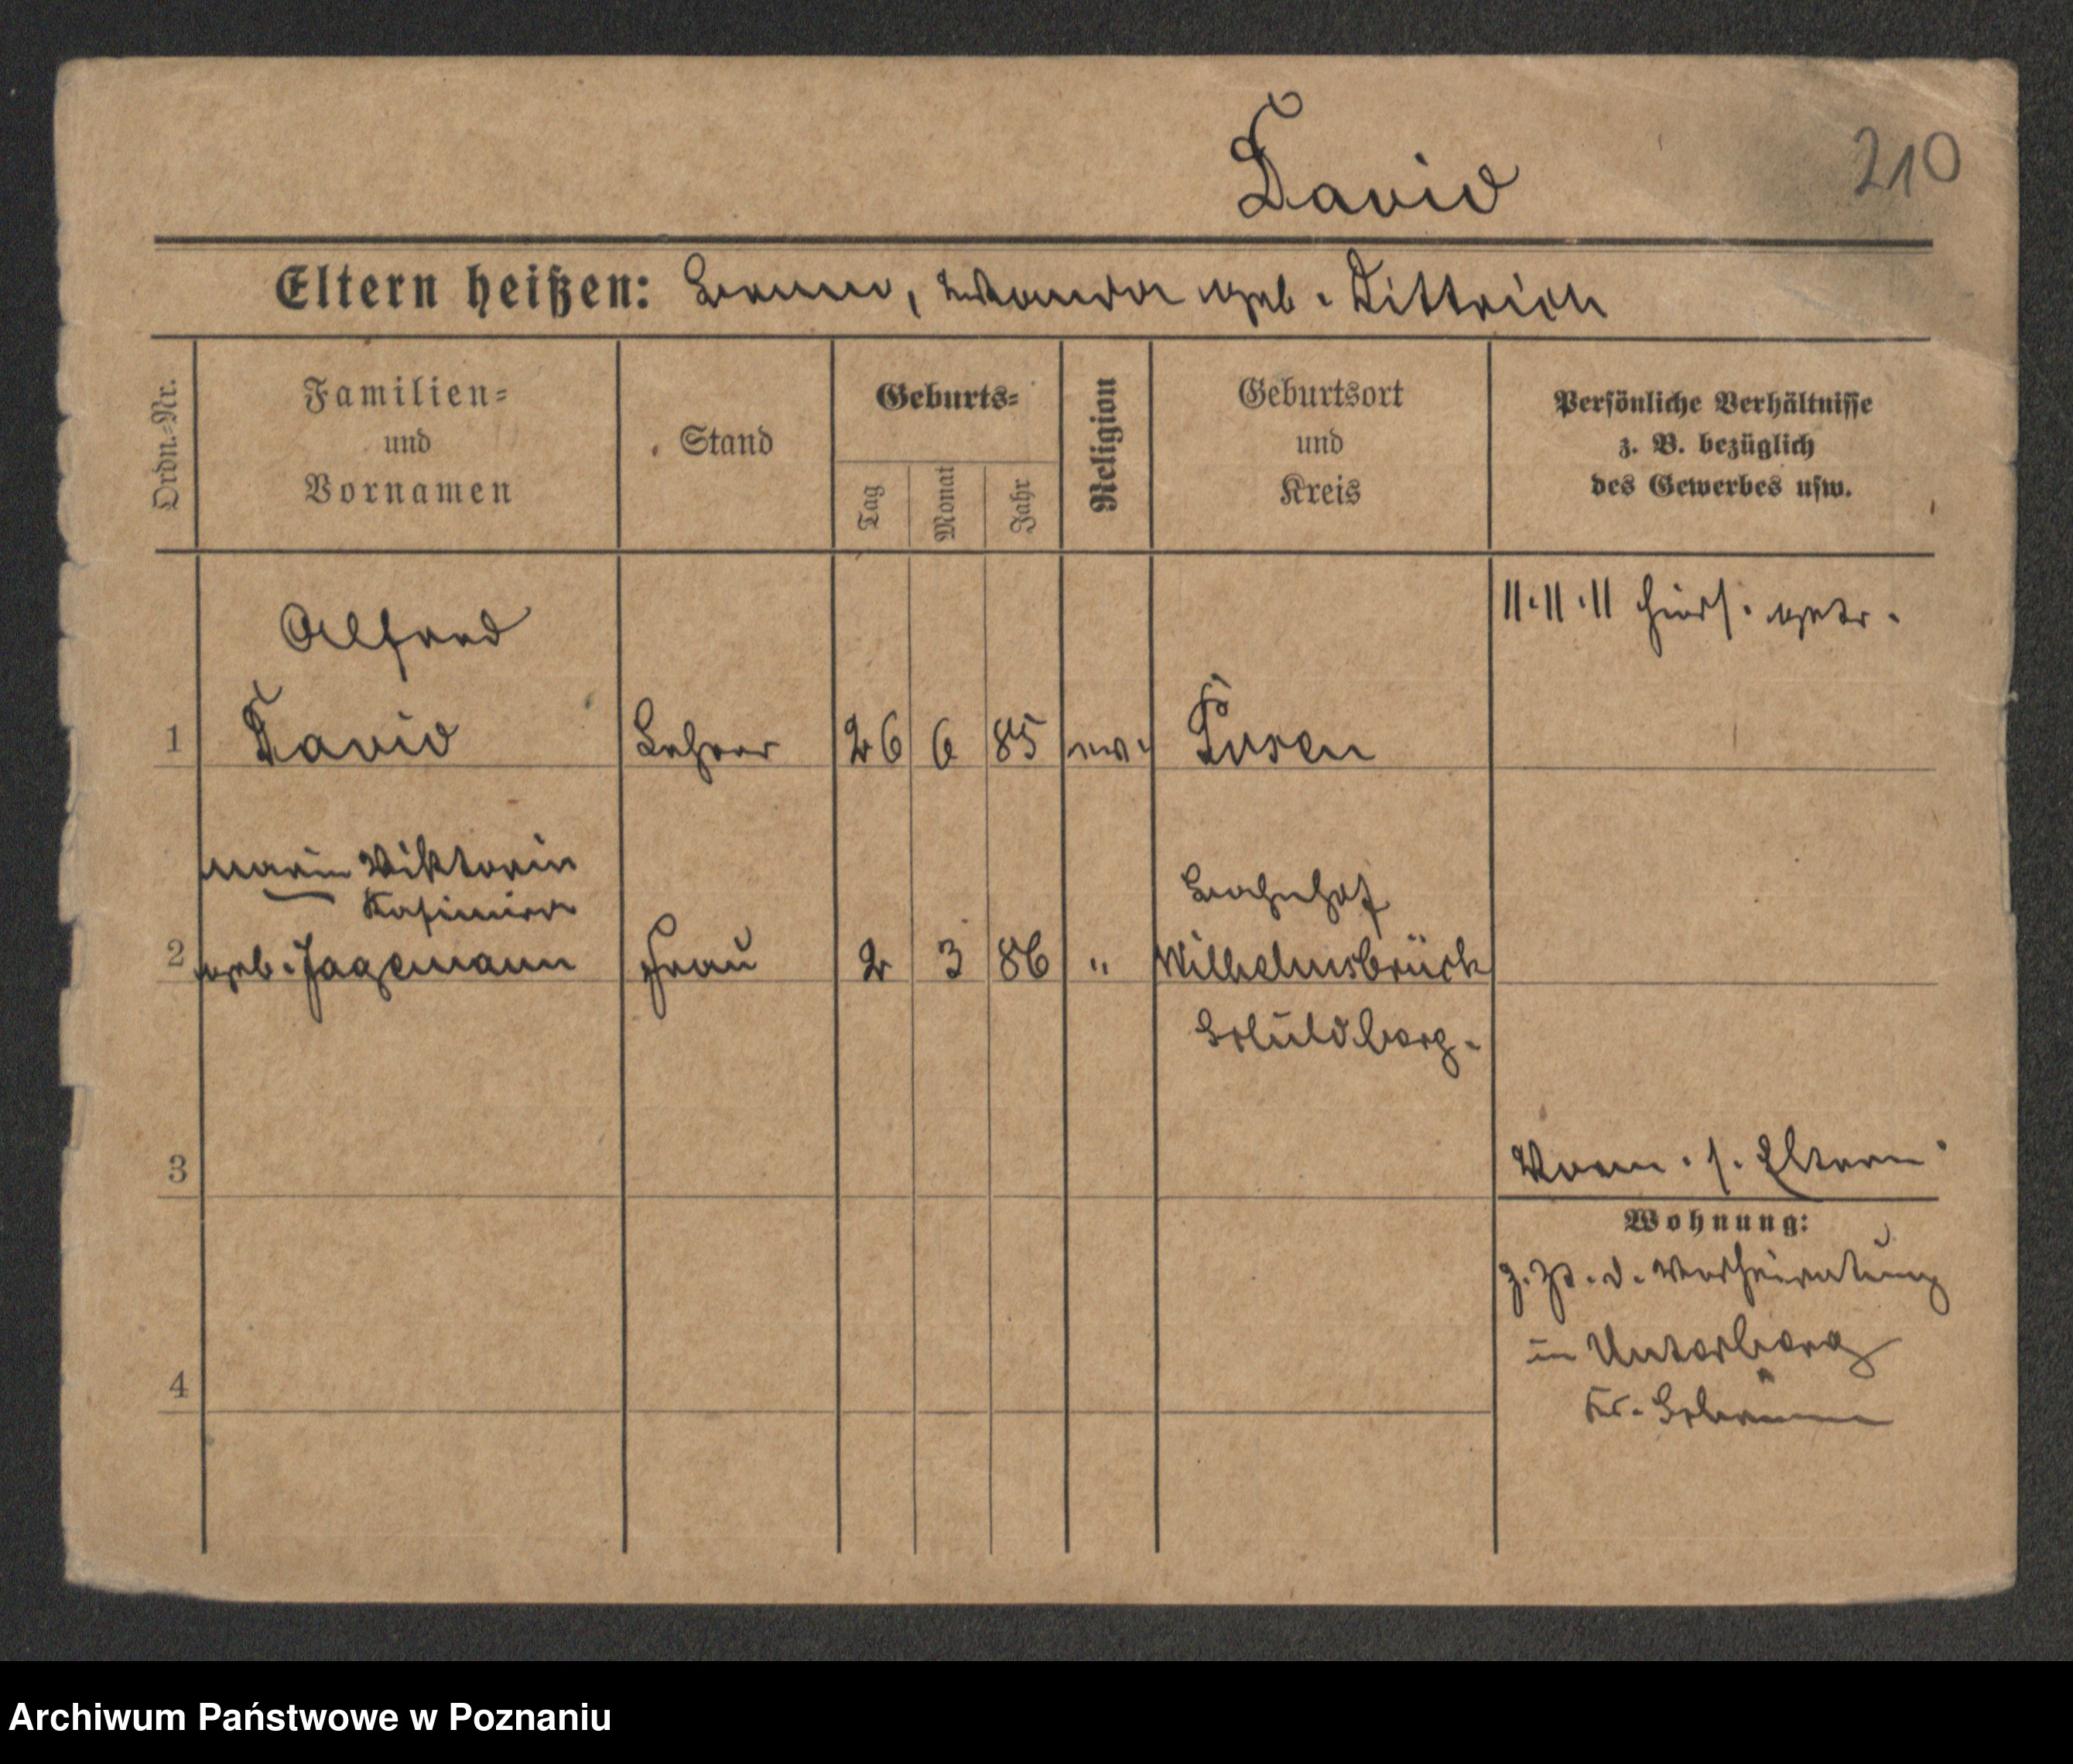 David
210
Eltern heißen: Bruno, Wanda geb. Dittrich
Ordn.-Nr.
Familien-
und
Vornamen
Stand
Geburts-
Tag
Monat
Jahr
Religion
Geburtsort
und
Kreis
Persönliche Verhältnisse
z. B. bezüglich
des Gewerbes usw.
11.11.11 hiers. getr.
Alfred
1 David Lehrer 26 6 85 ev. Posen
Marie Viktoria
Kasimira
2 geb. Jagemann Frau 2 3 86 " Bahnhof
Wilhelmsbrück
Schildberg.
3
Vorm. s. Eltern
Wohnung:
z. Zt. d. Verheiratung
in Unterberg
4
Kr. Schrimm
Archiwum Państwowe w Poznaniu